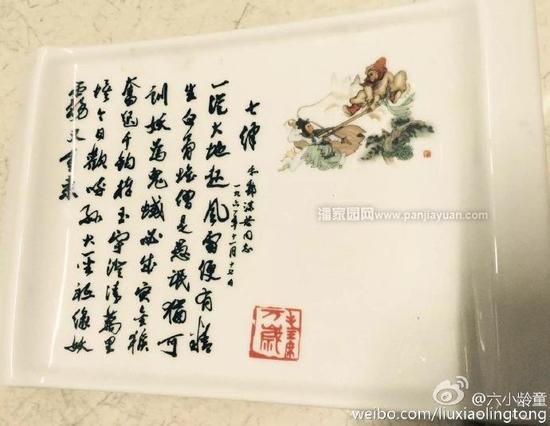 七律
和郭沫若同志
一九六一年十一月十七日
一從大地起風雷便有精
生白骨堆僧是愚氓猶可
訓妖为鬼蜮必成災金猴
奮起千鈞棒玉宇澄清萬里
埃今日歡呼孙大圣祗緣妖
霧又重来
毛主席
万歲
潘家园网
www.panjiayuan.com
@六小龄童
weibo.com/liuxiaolingtong